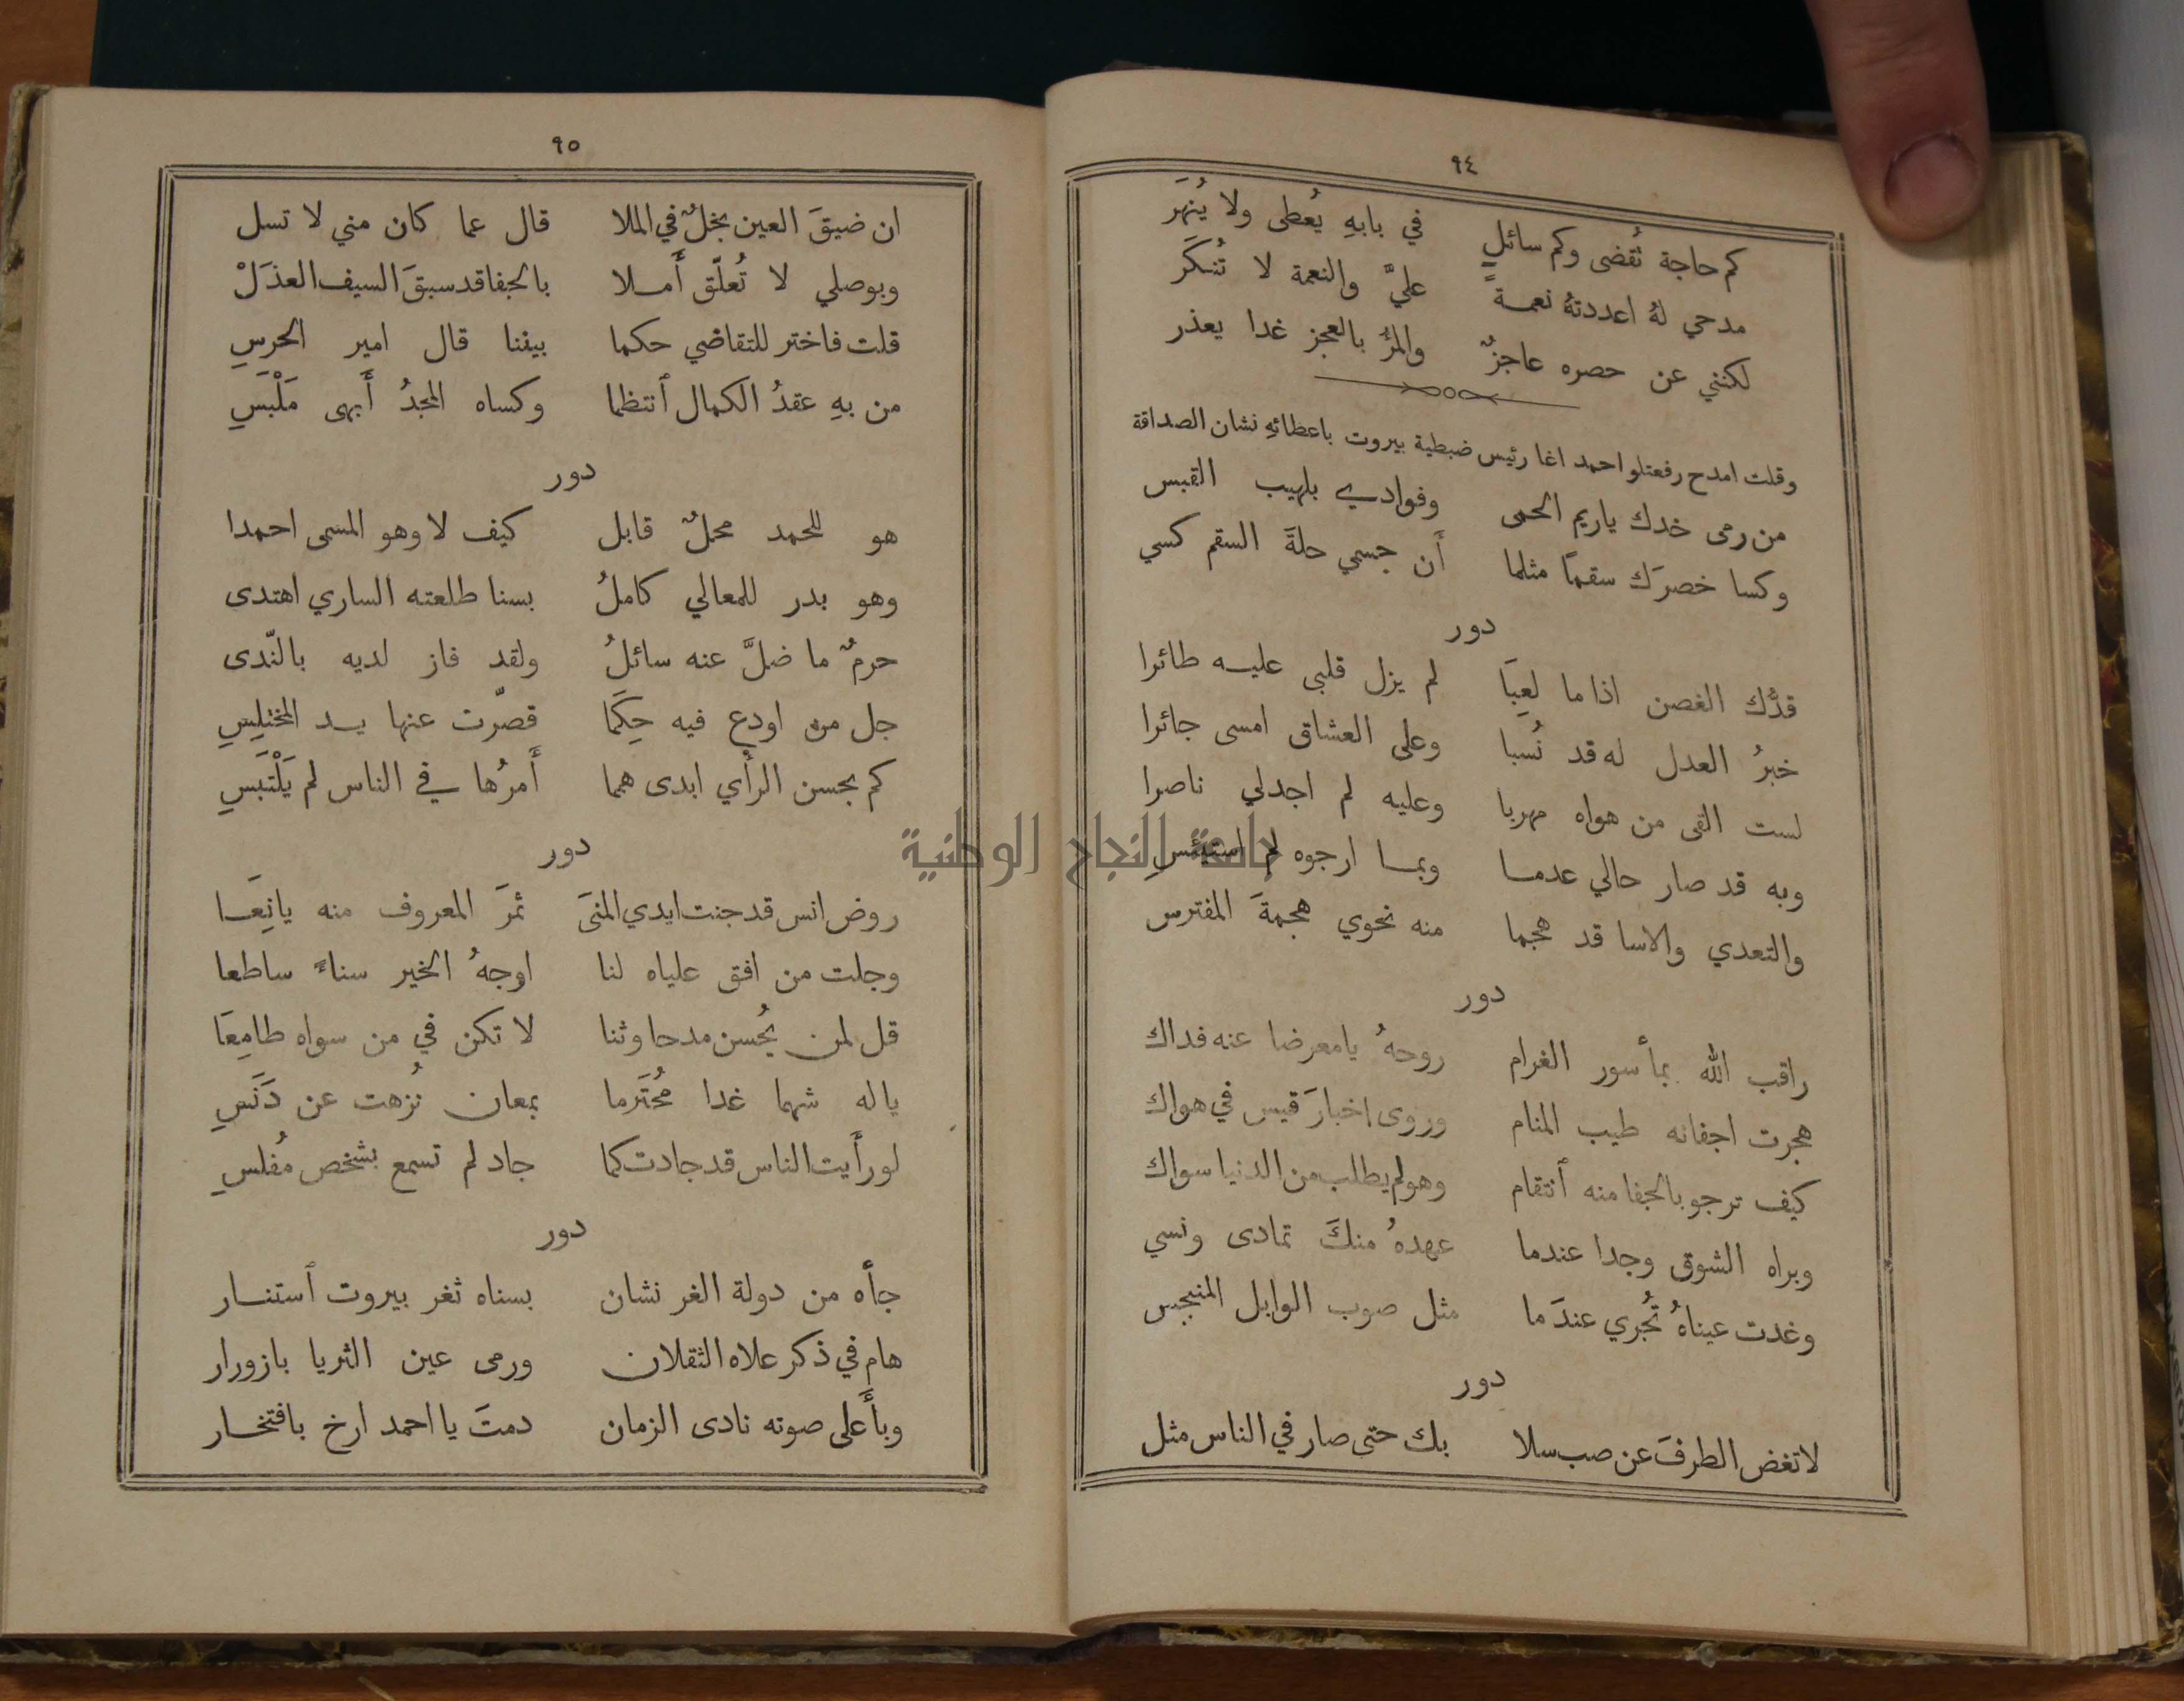 ٩٤
كم حاجة تُقضى وكم سائلٍ في بابهِ يُعطى ولا يُنهَر
مدحي لهُ اعددتهُ نعمـةً عليَّ والنعمة لا تُنكَر
لكنني عن حصره عاجزٌ والمرُ بالعجز غدا يعذر
وقلت امدح رفعتلو احمد اغا رئيس ضبطية بيروت باعطائهِ نشان الصداقة
من رمى خدك ياريم الحمى وفوادي بلهيب القبس
وكسا خصرَك سقمًا مثلما أن جسمي حلةَ السقم كسي
دور
قدُّك الغصن اذا ما لعِبَا لم يزل قلبي عليه طائرا
خبرُ العدل له قد نُسبا وعلى العشاق امسى جائرا
لست القى من هواه مهربا وعليه لم اجدلي ناصرا
وبه قد صار حالي عدما وبما ارجوه لم استئنسِ
والتعدي والاسا قد هجما منه نحوي هجمةَ المفترس
دور
راقب الله بمأسور الغرام روحهُ يامعرضا عنه فداك
هجرت اجفانه طيب المنام وروى اخبارَ قيس في هواك
كيف ترجو بالجفا منه أنتقام وهولم يطلب من الدنيا سواك
وبراه الشوق وجدا عندما عهدهُ منكَ تمادى ونسي
وغدت عيناهُ تُجري عندَ ما مثل صوب الوابل المنبجس
دور
لا تغض الطرفَ عن صب سلا بك حتى صار في الناس مثل
جامعة النجاح الوطنية
٩٥
ان ضيقَ العين بخلٌ في الملا قال عما كان مني لا تسل
وبوصلي لا تُعلّق أَملا بالجفا قد سبقَ السيف العذَلْ
قلت فاختر للتقاضي حكما بيننا قال امير الحرسِ
من بهِ عقدُ الكمال أنتظما وكساه المجدُ أَبهى مَلْبَسِ
دور
هو للحمد محلٌ قابل كيف لا وهو المسمى احمدا
وهو بدر للمعالي كاملُ بسنا طلعته الساري اهتدى
حرمٌ ما ضلَّ عنه سائلُ ولقد فاز لديه بالنّدى
جل من اودع فيه حِكَمَا قصّرت عنها يد المختلِسِ
كم بحسن الرأي ابدى همما أَمرُها في الناس لم يَلْتَبَسِ
دور
روض انس قد جنت ايدي المنىَ ثمرَ المعروف منه يانِعَا
وجلت من افق علياه لنا اوجهُ الخير سناءً ساطعا
قل لمن يُحسن مدحا وثنا لا تكن في من سواه طامِعَا
ياله شهما غدا مُحتَرما بمعان نُزهت عن دَنَسِ
لو رأَيت الناس قد جادت كما جاد لم تسمع بشخص مُفلسِ
دور
جأه من دولة الغر نشان بسناه ثغر بيروت أستنار
هام في ذكر علاه الثقلان ورمى عين الثريا بازورار
وبأَعلى صوته نادى الزمان دمتَ يا احمد ارخ بافتخار